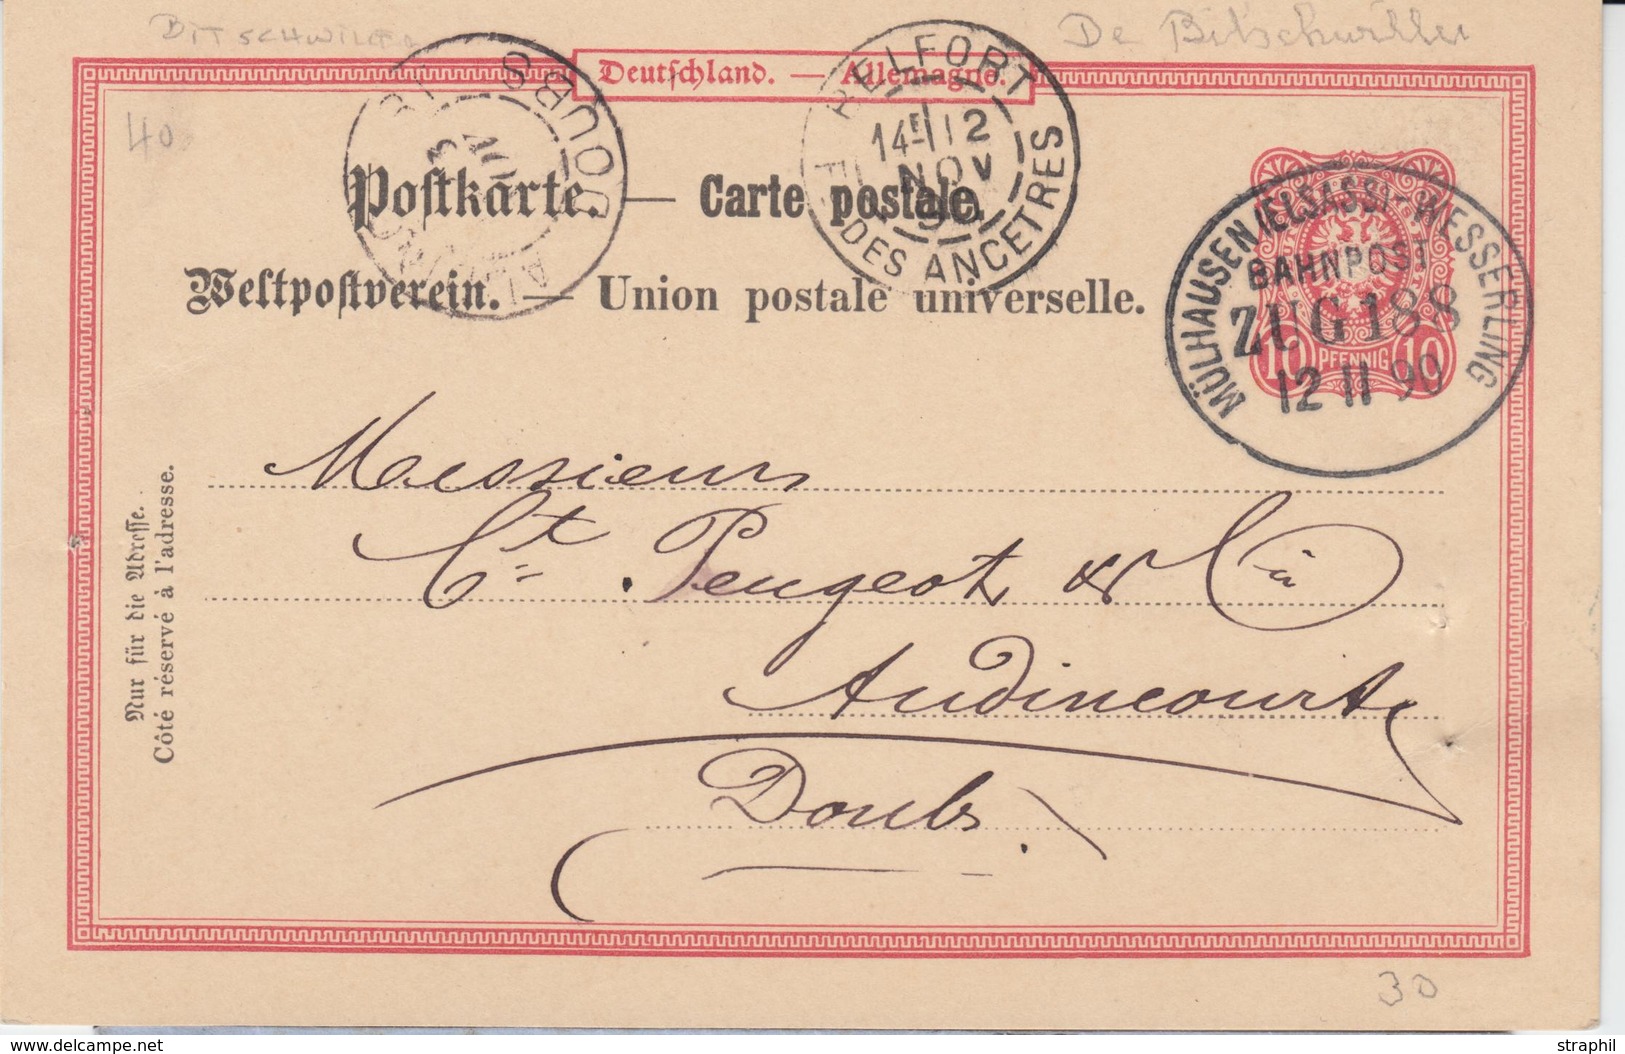 BITSCHWILLER
De Bitschwiller
40
Deutschland. — Allemagne.
Postkarte. — Carte postale.
Weltpostverein. — Union postale universelle.
DOUBS
BELFORT
14E 12
NOV
90
F. DES ANCETRES
MÜLHAUSEN (ELSASS) - WESSERLING
BAHNPOST
ZUG 188
12 11 90
10 PFENNIG 10
Nur für die Adresse.
Côté réservé à l'adresse.
Messieurs
Ct Peugeot & Cie à
Audincourt
Doubs
30
delcampe.net
straphil